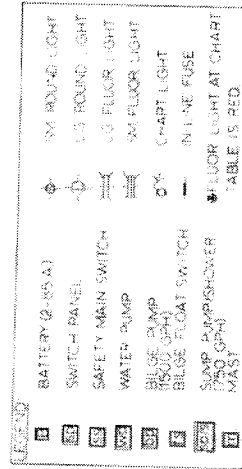 LEGEND
BATTERY (2-85 A)
SWITCH PANEL
SAFETY MAIN SWITCH
WATER PUMP
BILGE PUMP
(1500 GPH)
BILGE FLOAT SWITCH
SUMP PUMP/SHOWER
(750 GPH)
MAST
SM ROUND LIGHT
LG ROUND LIGHT
LG FLUOR LIGHT
SM FLUOR LIGHT
CHART LIGHT
IN LINE FUSE
FLUOR LIGHT AT CHART
TABLE IS RED